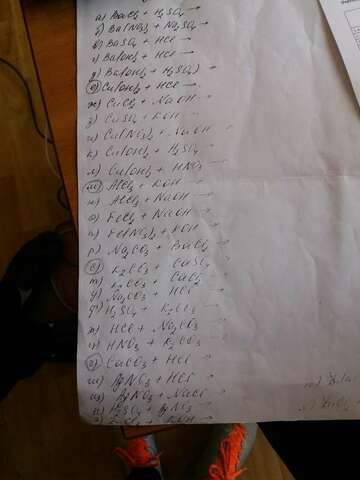 а) BaCl₂ + H₂SO₄ →
б) Ba(NO₃)₂ + Na₂SO₄ →
в) BaSO₄ + HCl →
г) Ba(OH)₂ + HCl →
д) Ba(OH)₂ + H₂SO₄) →
е) Cu(OH)₂ + HCl →
ж) CuCl₂ + NaOH →
з) CuSO₄ + KOH →
и) Cu(NO₃)₂ + NaOH →
к) Cu(OH)₂ + H₂SO₄ →
л) Cu(OH)₂ + HNO₃ →
м) AlCl₃ + KOH →
н) AlCl₃ + NaOH →
о) FeCl₂ + NaOH →
п) Fe(NO₃)₂ + KOH →
р) Na₂CO₃ + BaCl₂ →
с) K₂CO₃ + CuSO₄ →
т) K₂CO₃ + CaCl₂ →
у) Na₂CO₃ + HCl →
ф) H₂SO₄ + K₂CO₃ →
х) HCl + Na₂CO₃ →
ч) HNO₃ + K₂CO₃ →
CaCO₃ + HCl →
ш) AgNO₃ + HCl →
щ) AgNO₃ + NaCl →
H₂SO₄ + AgNO₃ →
+ KOH →